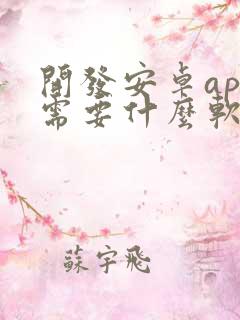 開發安卓ap
需要什麼軟
蘇宇飛